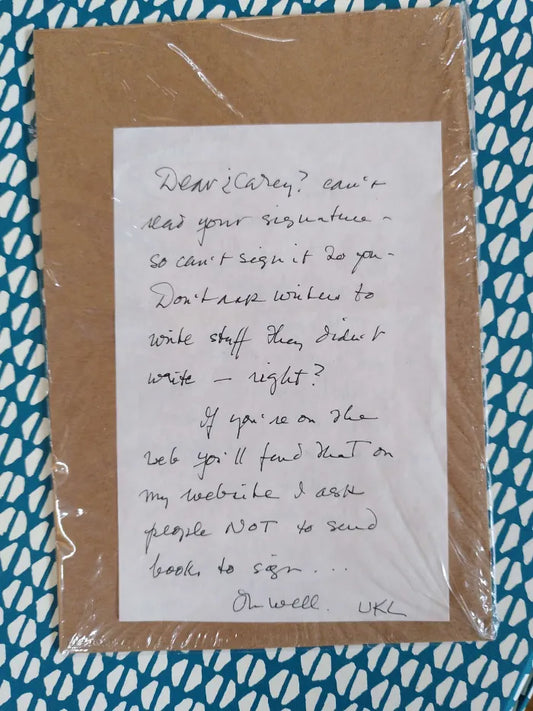 Dear ¿Carey? can't
read your signature –
so can't sign it to you –
Don't ask writers to
write stuff they didn't
write – right?
If you're on the
web you'll find that on
my website I ask
people NOT to send
books to sign...
Oh well. UKL